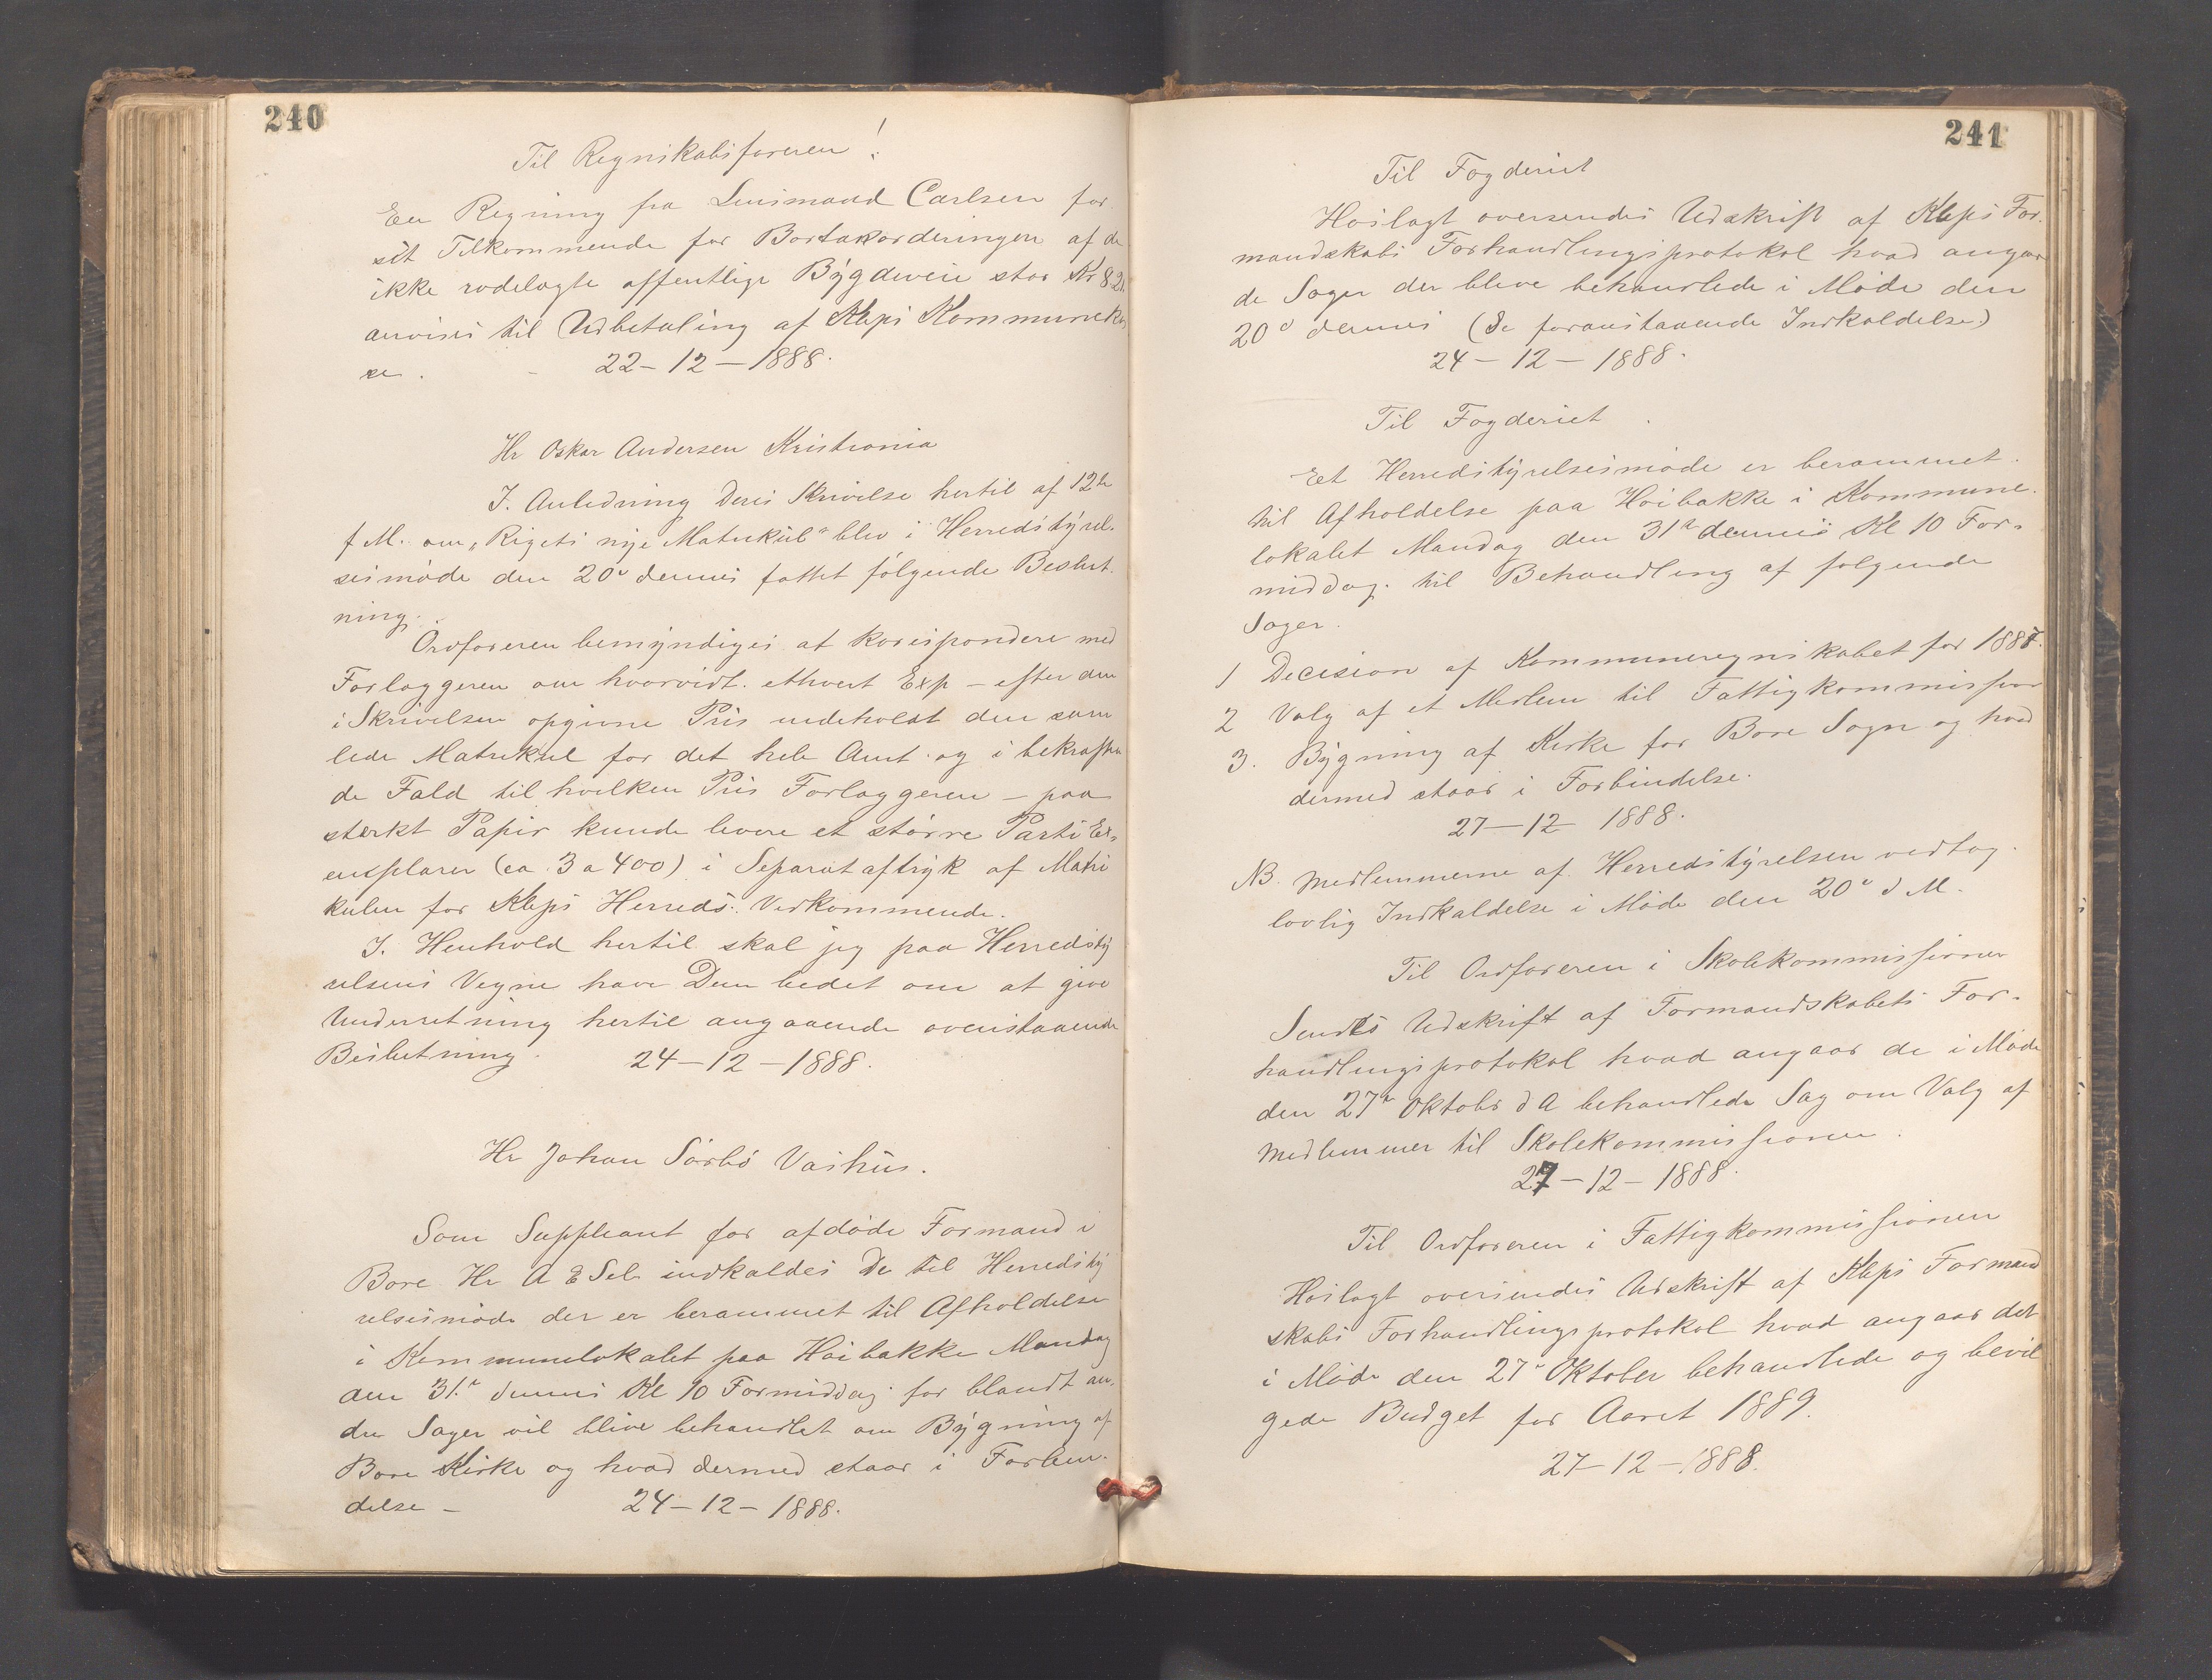 240
Til Regnskabsføreren!
En Regning fra Lensmand Carlsen for
sit Tilkommende for Bortakorderingen af de
ikke rodelagte offentlige Bygdeveie stor Kr 8 20
anvises til Udbetaling af Kleps Kommunekas
se. 22-12-1888.
Hr Oskar Andersen Kristiania
I. Anledning Deres Skrivelse hertil af 12te
f M. om "Rigets nye Matrikül" blev i Herredstyrel.
sesmøde den 20de dennes fattet følgende Beslut.
ning.
Ordføreren bemyndiges at korespondere med
Forlæggeren om hvorvidt ethvert Exp - efter den
i Skrivelsen opgivne Pris indeholdt den sam
lede Matrikul for det hele Amt og i bekræften
de Fald til hvilken Pris Forlæggeren - paa
stærkt Papir kunde levere et større Parti Ex-
emplarer (ca. 3 a 400) i Separataftryk af Matri
kulen for Kleps Herreds Vedkommende.
I. Henhold hertil skal jeg paa Herredsty
relsens Vegne have Dem bedet om at give
Underretning hertil angaaende ovenstaaende
Beslutning. 24-12-1888.
Hr Johan Sørbø Vashus.
Som Suppleant for afdøde Formand i
Bore Hr A E Sele indkaldes De til Herredsty
relsesmøde der er berammet til Afholdelse
i Kommunelokalet paa Høibakke Mandag
den 31te dennes Kl 10 Formiddag. for blandt an.
dre Sager vil blive behandlet om Bygning af
Bore Kirke og hvad dermed staar i Forbin-
delse - 24-12-1888.
241
Til Fogderiet
Høilagt oversendes Udskrift af Kleps For.
mandskabs Forhandlingsprotokol hvad angaar
de Sager der bleve behandlede i Møde den
20de dennes (Se foranstaaende Indkaldelse)
24-12-1888.
Til Fogderiet
Et Herredstyrelsesmøde er berammet.
til Afholdelse paa Høibakke i Kommune.
lokalet Mandag den 31te dennes Kl 10 For-
middag. til Behandling af følgende
Sager.
1 Decision af Kommuneregnskabet for 1887.
2 Valg af et Medlem til Fattigkommission
3. Bygning af Kirke for Bore Sogn og hvad
dermed staar i Forbindelse.
27-12 1888.
NB. Medlemmerne af Herredstyrelsen vedtog.
lovlig Indkaldelse i Møde den 20de d M.
Til Ordføreren i Skolekommissionen
Sendes Udskrift af Formandskabets For-
handlingsprotokol hvad angaar de i Møde
den 27de Oktobr d A behandlede Sag om Valg af
Medlemmer til Skolekommissionen.
27-12-1888.
Til Ordføreren i Fattigkommissionen
Høilagt oversendes Udskrift af Kleps Formand
skabs Forhandlingsprotokol hvad angaar det
i Møde den 27de Oktober behandlede og bevil
gede Budget for Aaret 1889.
27-12-1888.